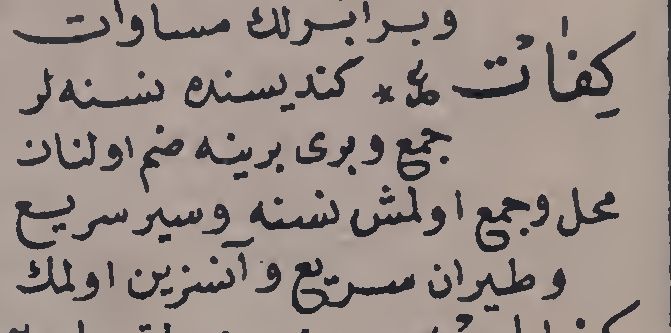 وبرابرلك مساوات
كِفٰاتْ * كنديسنده نسنه لر
جمع وبرى برينه ضم اولنان
محل وجمع اولمش نسنه وسير سريع
وطيران سريع وآنسزين اولمك